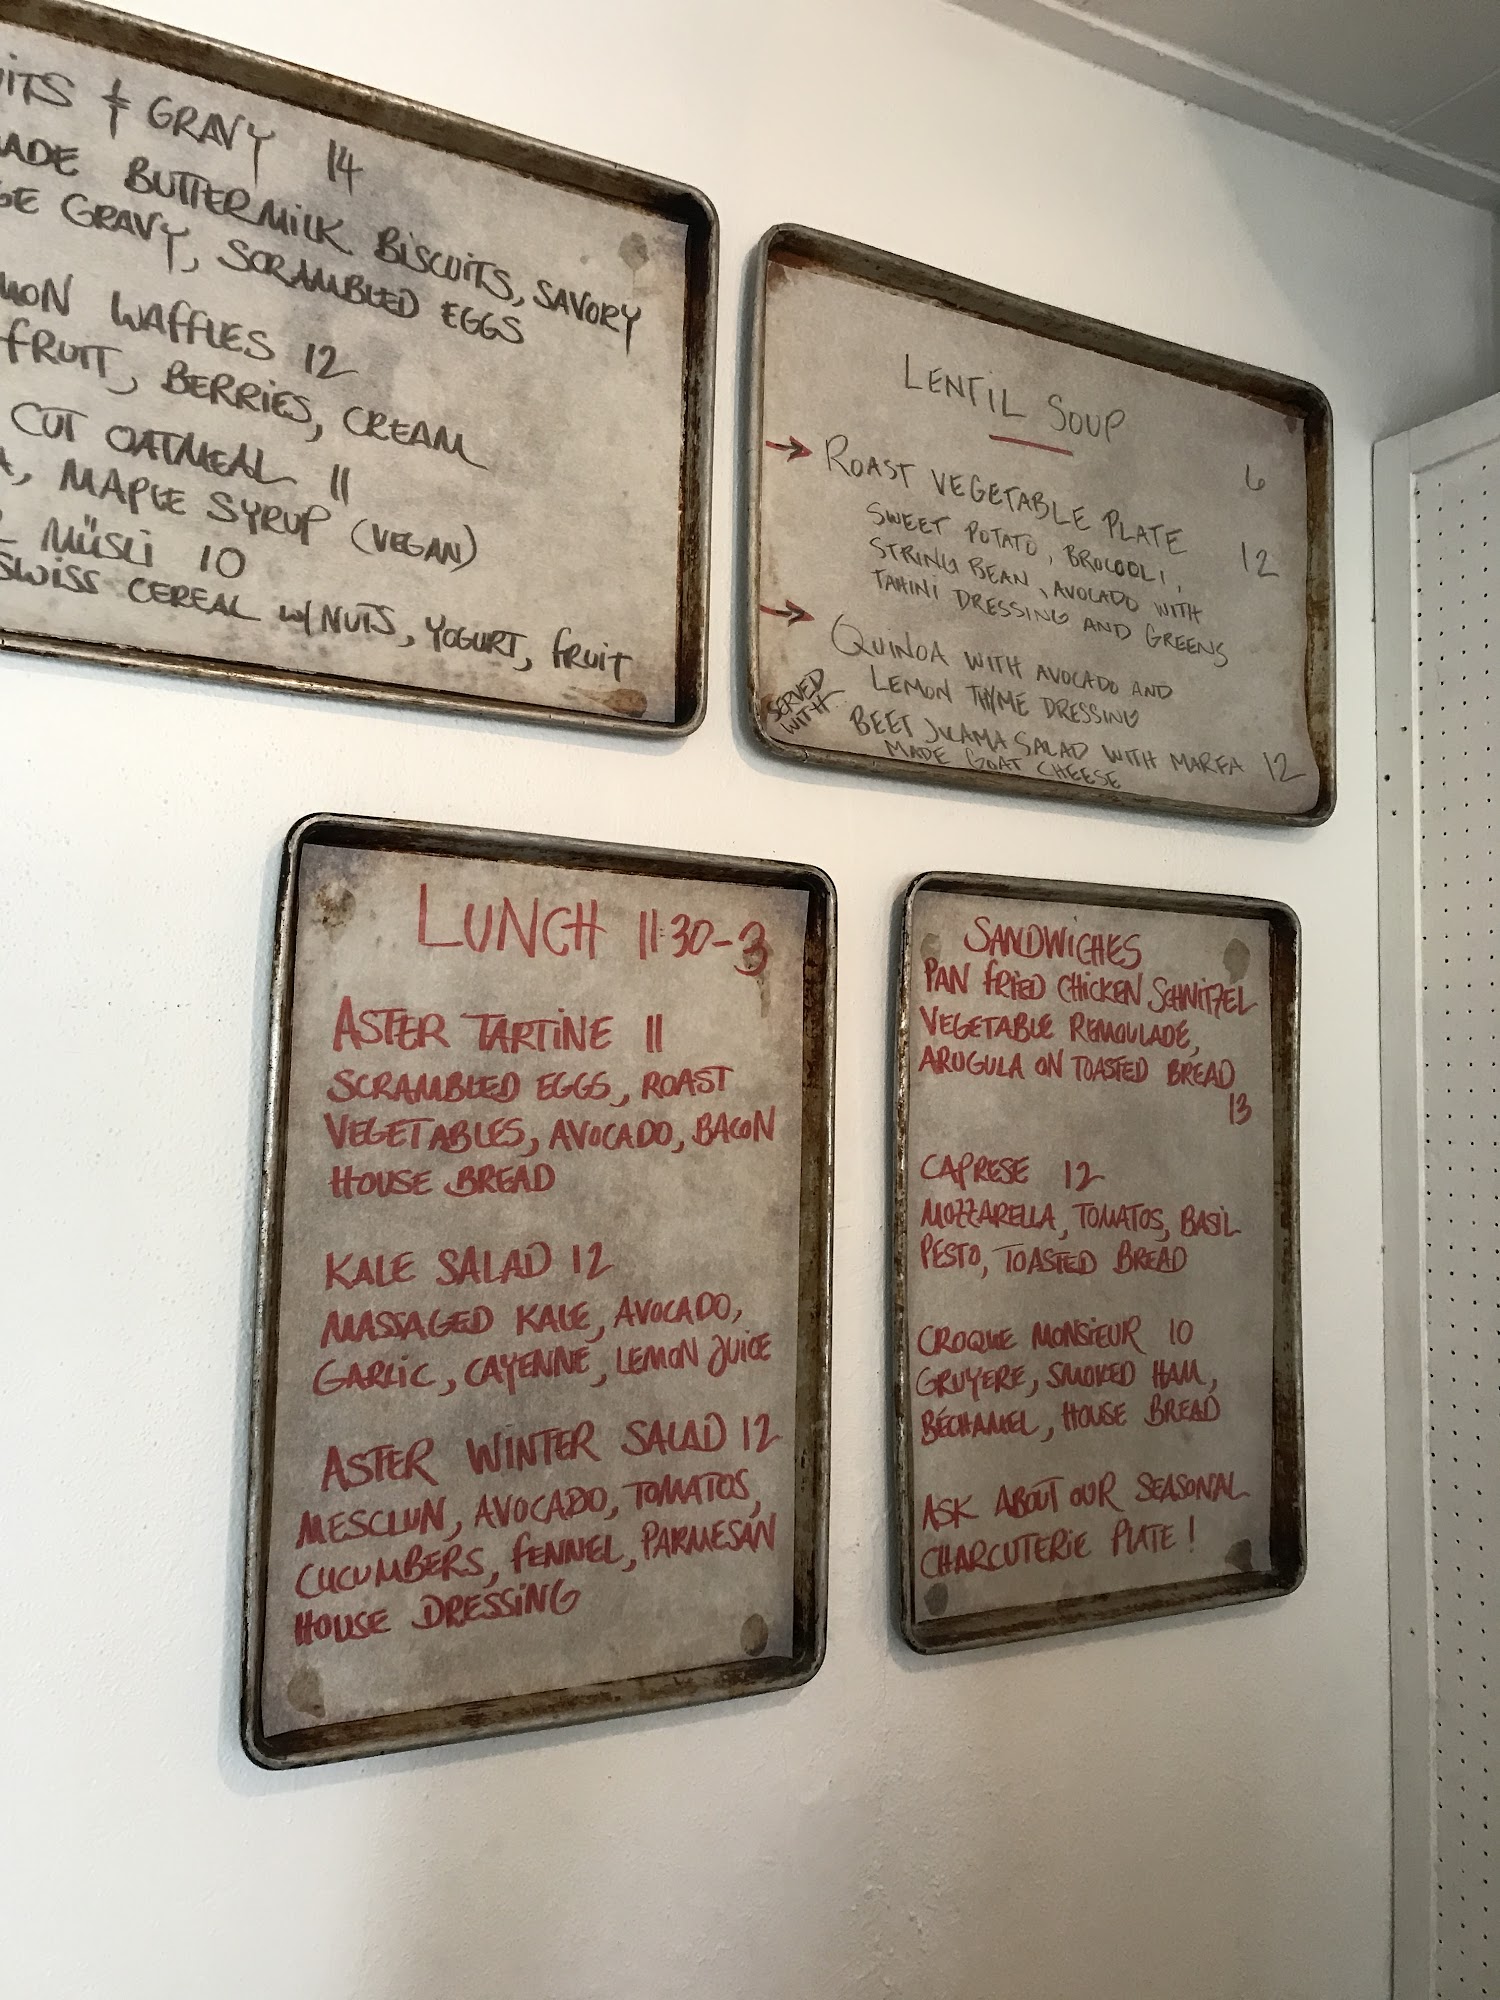 & GRAVY 14
BUTTERMILK BISCUITS, SAVORY
GRAVY, SCRAMBLED EGGS
WAFFLES 12
FRUIT, BERRIES, CREAM
CUT OATMEAL 11
MAPLE SYRUP (VEGAN)
MÜSLI 10
SWISS CEREAL W/ NUTS, YOGURT, FRUIT
LENTIL SOUP 6
→ ROAST VEGETABLE PLATE 12
SWEET POTATO, BROCOOLI,
STRING BEAN, AVOCADO WITH
TAHINI DRESSING AND GREENS
→ QUINOA WITH AVOCADO AND
LEMON THYME DRESSING
SERVED
WITH
BEET JICAMA SALAD WITH MARFA 12
MADE GOAT CHEESE
LUNCH 11:30-3
ASTER TARTINE 11
SCRAMBLED EGGS, ROAST
VEGETABLES, AVOCADO, BACON
HOUSE BREAD
KALE SALAD 12
MASSAGED KALE, AVOCADO,
GARLIC, CAYENNE, LEMON JUICE
ASTER WINTER SALAD 12
MESCLUN, AVOCADO, TOMATOS,
CUCUMBERS, FENNEL, PARMESAN
HOUSE DRESSING
SANDWICHES
PAN FRIED CHICKEN SCHNITZEL
VEGETABLE REMOULADE,
ARUGULA ON TOASTED BREAD
13
CAPRESE 12
MOZZARELLA, TOMATOS, BASIL
PESTO, TOASTED BREAD
CROQUE MONSIEUR 10
GRUYERE, SMOKED HAM,
BÉCHAMEL, HOUSE BREAD
ASK ABOUT OUR SEASONAL
CHARCUTERIE PLATE!